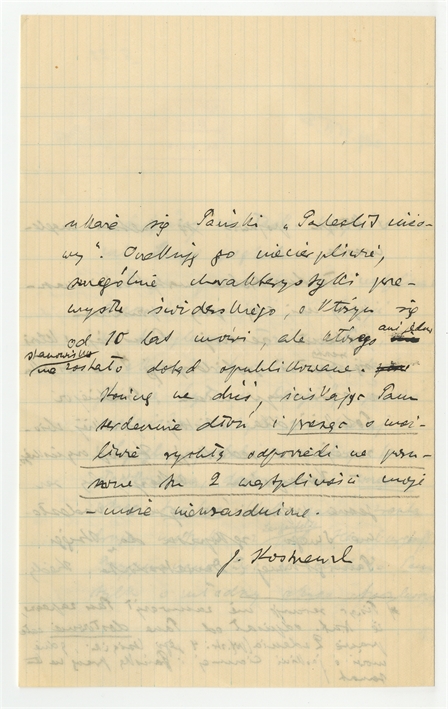 ukaże się Pański „Paleolit nizo-
wy”. Oczekuję go niecierpliwie,
szczególnie charakterystyki prze-
mysłu świderskiego, o którym się
od 10 lat mówi ale którego ani jedno
stanowisko
nie zostało dotąd opublikowane.
Kończę na dziś, ściskając Panu
serdecznie dłoń i prosząc o moż-
liwie rychłą odpowiedź na poru-
szone tu 2 wątpliwości moje
– może nieuzasadnione.
J.